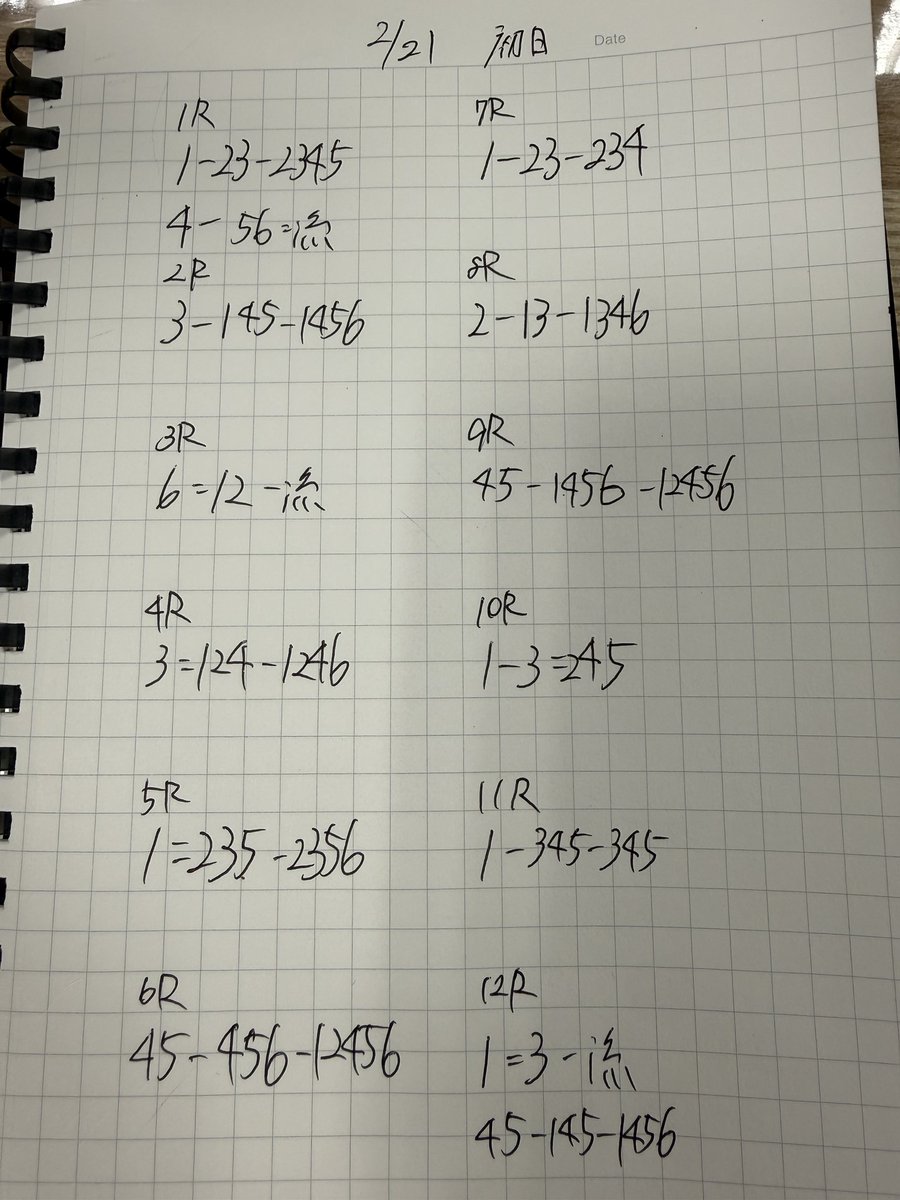 2/21 初日
Date
1R
1-23-2345
4-56=流
2R
3-145-1456
3R
6=12-流
4R
3=124-1246
5R
1=235-2356
6R
45-456-12456
7R
1-23-234
8R
2-13-1346
9R
45-1456-12456
10R
1-3=245
11R
1-345-345
12R
1=3-流
45-145-1456